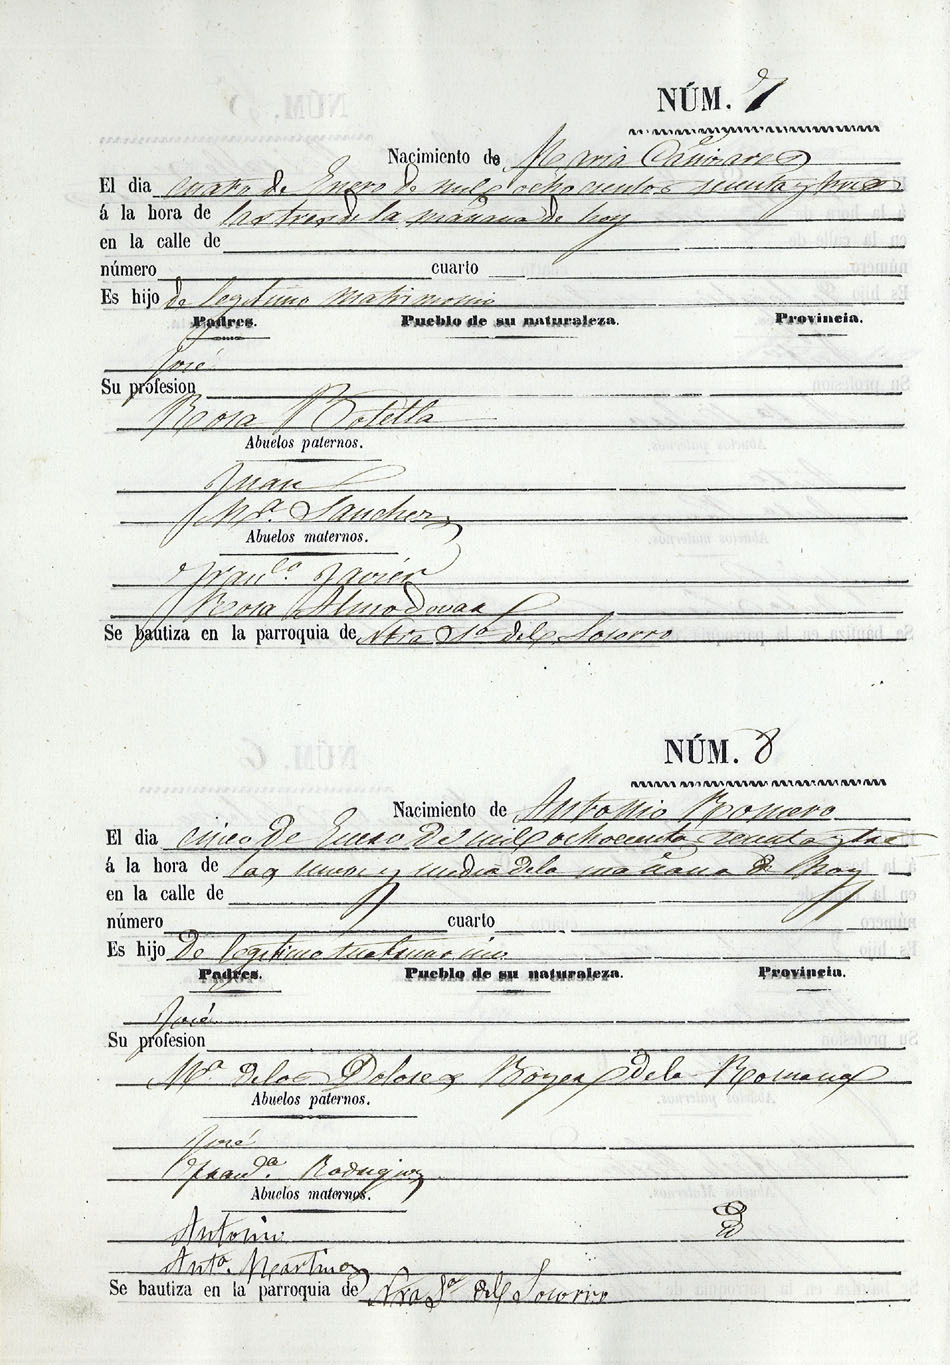 NÚM. 7
Nacimiento de Maria Cañizares
El dia cuatro de Enero de mil ochocientos sesenta y tres
á la hora de las tres de la mañana de hoy
en la calle de
número cuarto
Es hijo de legitimo matrimonio
Padres. Pueblo de su naturaleza. Provincia.
José
Su profesion
Rosa Botella
Abuelos paternos.
Juan
Mª Sanchez
Abuelos maternos.
Franco. Javier
Rosa Almodovar
Se bautiza en la parroquia de Ntra Sa del Socorro
NÚM. 8
Nacimiento de Antonio Romero
El dia cinco de Enero de mil ochocientos sesenta y tres
á la hora de las nueve y media de la mañana de hoy
en la calle de
número cuarto
Es hijo de legitimo matrimonio
Padres. Pueblo de su naturaleza. Provincia.
José
Su profesion
Mª de los Dolores de la Romana
Abuelos paternos.
José
Franca. Rodriguez
Abuelos maternos.
Antonio
Anta. Martinez
Se bautiza en la parroquia de Ntra Sa del Socorro